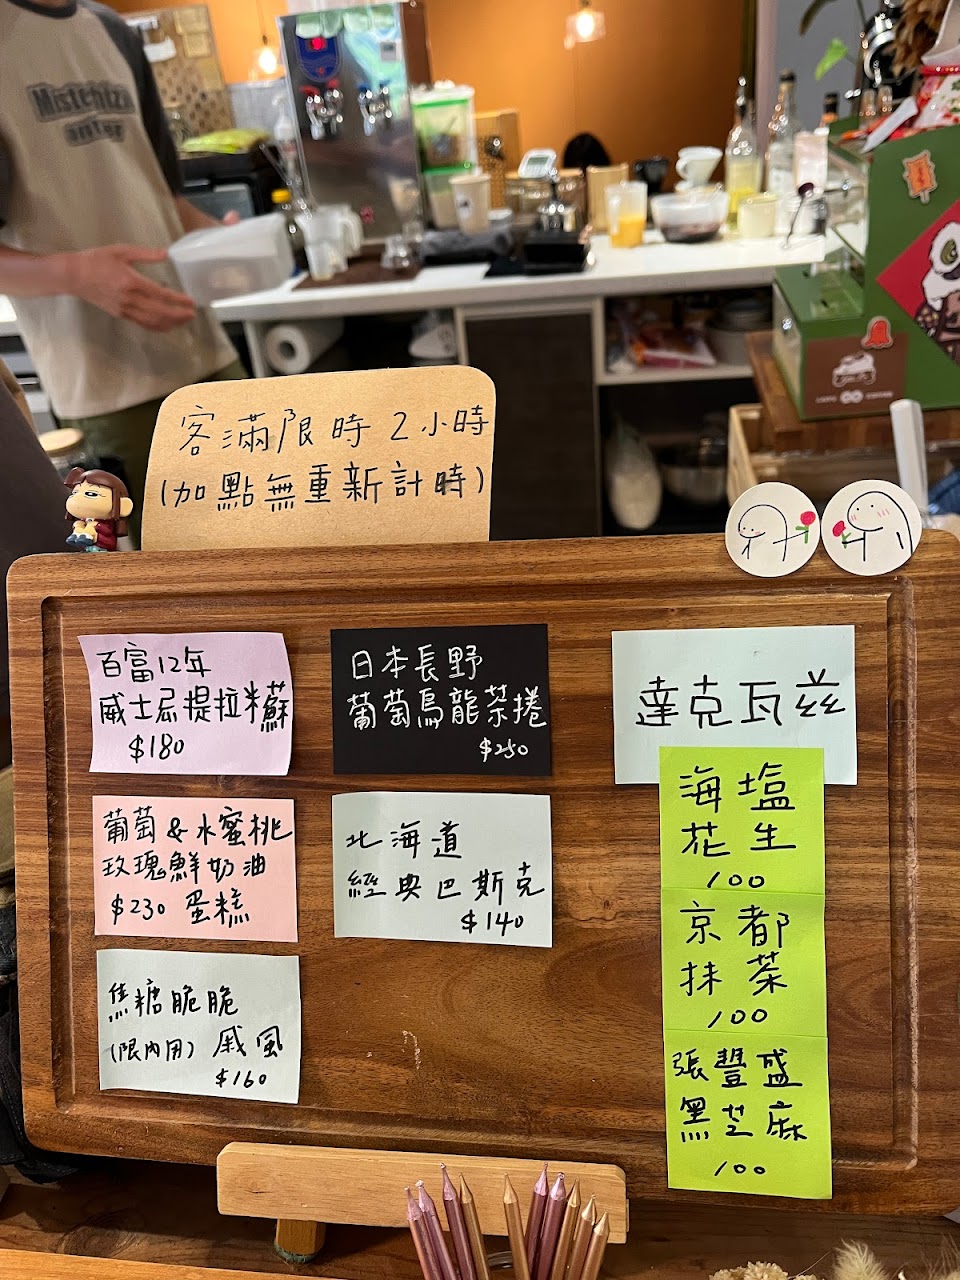 Mistchiza
客滿限時2小時
(加點無重新計時)
百富12年
威士忌提拉米蘇
$180
葡萄&水蜜桃
玫瑰鮮奶油
$230 蛋糕
焦糖脆脆
(限內用) 戚風
$160
日本長野
葡萄烏龍茶捲
$250
北海道
經典巴斯克
$140
達克瓦茲
海塩
花生
100
京都
抹茶
100
張豐盛
黑芝麻
100